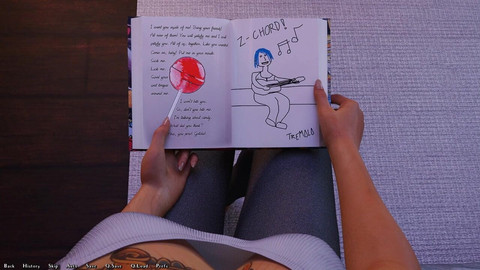 I want you inside of me! Bring your friends!
All four of them! You will satisfy me and I will
satisfy you. All of us, together. Lake
Come on, baby! Put me in your mouth
Lick me
Suck me
and tongue
around me!
I won't tell you.
No, don't you tell me.
I'm talking about candy.
What did you think?
you great
Z-CHORD!
TREMOLO
Back History Skip Auto Save Q.Save Q.Load Prefs